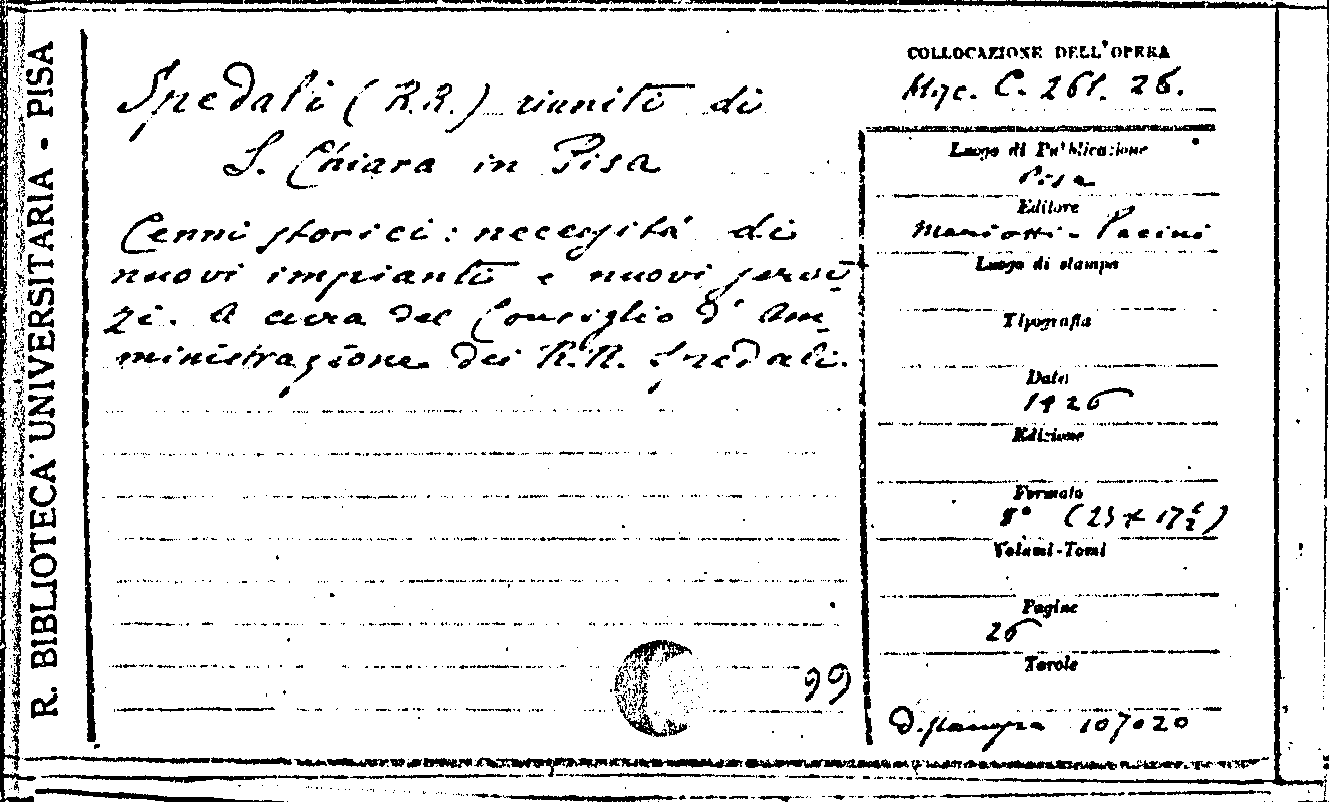 R. BIBLIOTECA UNIVERSITARIA - PISA
Spedali (R.R.) riuniti di
S. Chiara in Pisa
Cenni storici: necessità di
nuovi impianti e nuovi servi-
zi. A cura del Consiglio d'Am-
ministrazione dei R.R. Spedali.
99
COLLOCAZIONE DELL'OPERA
Misc. C. 261. 26.
Luogo di Pubblicazione
Pisa
Editore
Mariotti - Pacini
Luogo di stampa
Tipografia
Data
1926
Edizione
Formato
8° (25 x 17½)
Volumi-Tomi
Pagine
26
Tavole
D. stampa 107020